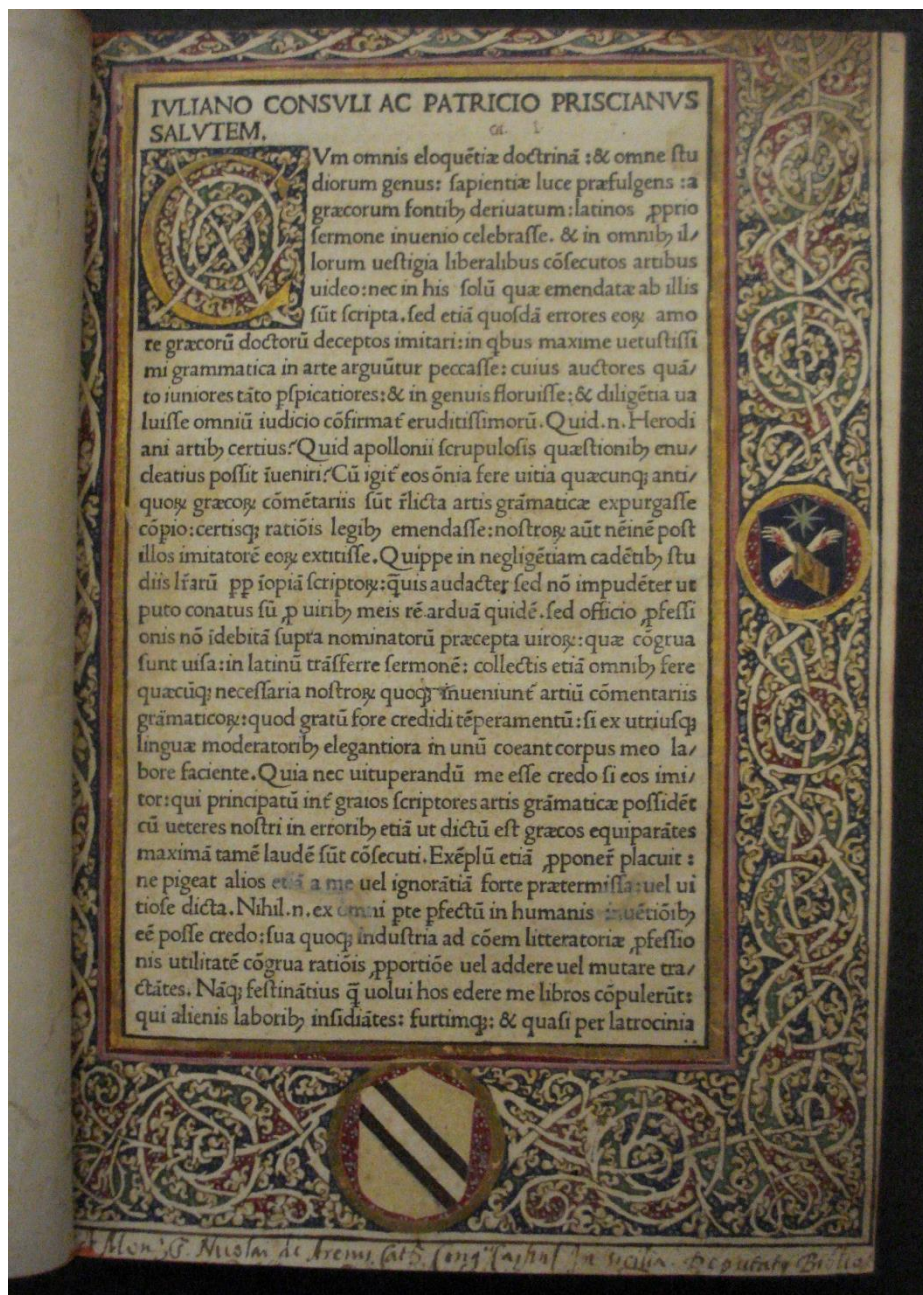 IVLIANO CONSVLI AC PATRICIO PRISCIANVS
SALVTEM.
CVm omnis eloquētiæ doctrinā :& omne ſtu
diorum genus: ſapientiæ luce præfulgens :a
græcorum fontibꝫ deriuatum:latinos ꝓprio
ſermone inuenio celebraſſe. & in omnibꝫ il/
lorum ueſtigia liberalibus cōſecutos artibus
uideo:nec in his ſolū quæ emendatæ ab illis
ſūt ſcripta.ſed etiā quoſdā errores eoꝝ amo
re græcorū doctorū deceptos imitari:in qbus maxime uetuſtiſſi
mi grammatica in arte arguūtur peccaſſe: cuius auctores quā/
to iuniores tāto pſpicatiores:& in genuis floruiſſe:& diligētia ua
luiſſe omniū iudicio cōfirmat̄ eruditiſſimorū.Quid.n.Herodi
ani artibꝫ certius?Quid apollonii ſcrupuloſis quæſtionibꝫ enu/
cleatius poſſit īueniri?Cū igit̄ eos ōnia fere uitia quæcunqꝫ anti/
quoꝝ græcoꝝ cōmētariis ſūt r̄licta artis grāmaticæ expurgaſſe
cōpio:certiſqꝫ ratiōis legibꝫ emendaſſe:noſtroꝝ aūt nēinē poſt
illos imitatorē eoꝝ extitiſſe.Quippe in negligētiam cadētibꝫ ſtu
diis lr̄arū pp īopiā ſcriptoꝝ:q̄uis audacter ſed nō impudēter ut
puto conatus ſū ꝓ uiribꝫ meis rē.arduā quidē.ſed officio ꝓfeſſi
onis nō īdebitā ſupra nominatorū præcepta uiroꝝ:quæ cōgrua
ſunt uiſa:in latinū trāſferre ſermonē: collectis etiā omnibꝫ fere
quæcūqꝫ neceſſaria noſtroꝝ quoqꝫ inueniunt̄ artiū cōmentariis
grāmaticoꝝ:quod gratū fore credidi tēperamentū:ſi ex utriuſqꝫ
linguæ moderatoribꝫ elegantiora in unū coeant corpus meo la/
bore faciente.Quia nec uituperandū me eſſe credo ſi eos imi/
tor:qui principatū int̄ graios ſcriptores artis grāmaticæ poſſidēt
cū ueteres noſtri in erroribꝫ etiā ut dictū eſt græcos equiparātes
maximā tamē laudē ſūt cōſecuti.Exēplū etiā ꝓponer̄ placuit :
ne pigeat alios etiā a me uel ignorātiā forte prætermiſſa:uel ui
tioſe dicta.Nihil.n.ex omni pte pfectū in humanis inuētiōibꝫ
eē poſſe credo:ſua quoqꝫ induſtria ad cōem litteratoriæ ꝓfeſſio
nis utilitatē cōgrua ratiōis ꝓportiōe uel addere uel mutare tra/
ctātes. Nāqꝫ feſtinātius q̄ uolui hos edere me libros cōpulerūt:
qui alienis laboribꝫ inſidiātes: furtimqꝫ: & quaſi per latrocinia
Nicolai de in Sicilia Deputaty Biblio